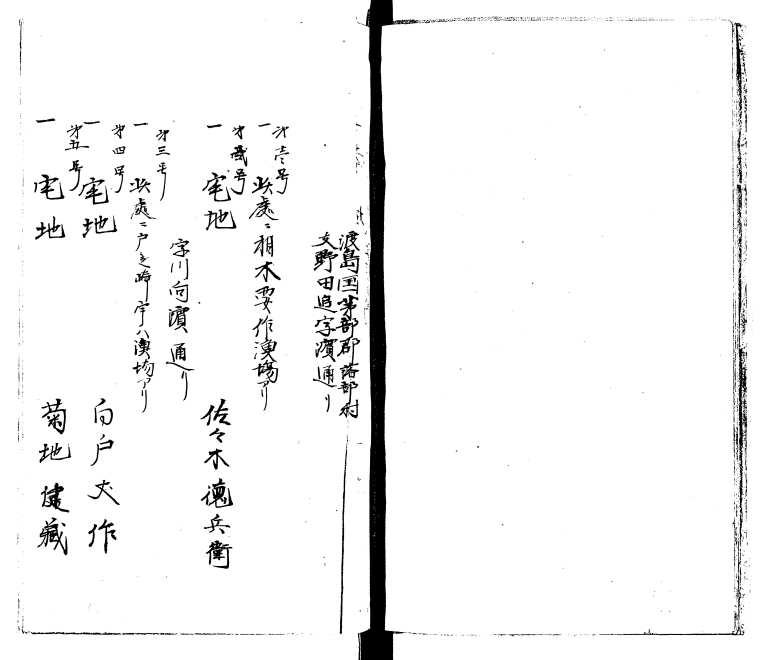 渡島国茅部郡落部村
支野田追字濱通リ
第壱号
一 此處ニ相木要作漁場アリ
第貳号
一 宅地 佐々木德兵衛
字川向濱通リ
第三号
一 此處ニ戸主 ハ漁場アリ
第四号
一 宅地 白戸丈作
第五号
一 宅地 菊地健藏